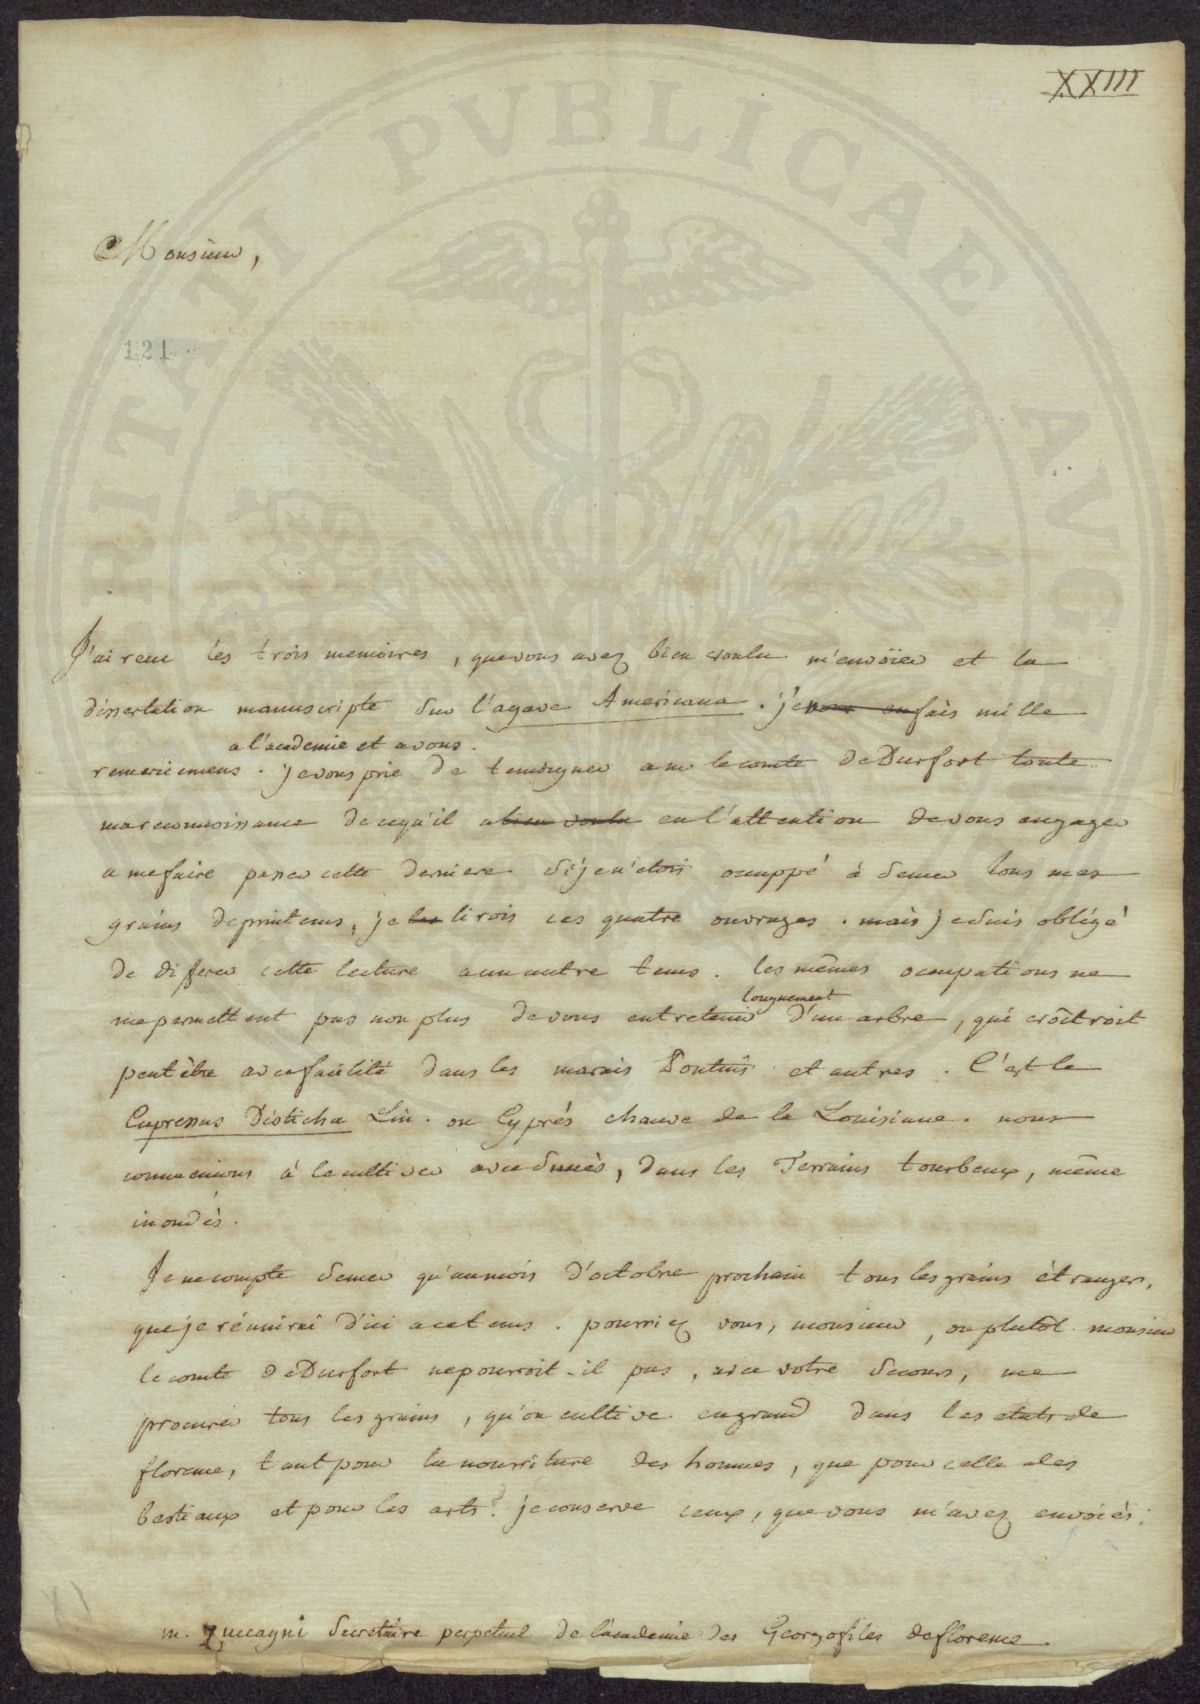 XXIII
Monsieur,
121
J'ai recu les trois memoires, que vous avez bien voulu m'envoïer et la
dissertation manuscripte sur l'agave Americana. je fais mille
a l'academie et a vous.
remerciemens. je vous prie de temoigner a mr le comte de Durfort toute
ma reconnoissance de ce qu'il a bien voulu eu l'attention de vous engager
a me faire passer cette derniere. si je n'etois occuppé à semer tous mes
grains de printems, je les lirois ces quatre ouvrages. mais je suis obligé
de differer cette lecture a un autre tems. les mêmes occupations ne
longuement
me permettent pas non plus de vous entretenir d'un arbre, qui croîtroit
peut être avec facilité dans les marais Pontins et autres. C'est le
Cupressus Disticha Lin. ou Cyprés chauve de la Louisiane. nous
commencions à le cultiver avec succès, dans les Terrains tourbeux, même
inondés.
Je ne compte semer qu'au mois d'octobre prochain tous les grains étrangers,
que je réunirai d'ici a ce tems. pourriez vous, monsieur, ou plutôt monsieur
le comte de Durfort ne pourroit-il pas, avec votre secours, me
procurer tous les grains, qu'on cultive en grand dans les etats de
florence, tant pour la nourriture des hommes, que pour celle des
bestiaux et pour les arts? je conserve ceux, que vous m'avez envoiés;
m. Zuccagni Secretaire perpetuel de l'academie des Georgofiles de florence
PVBLICAE